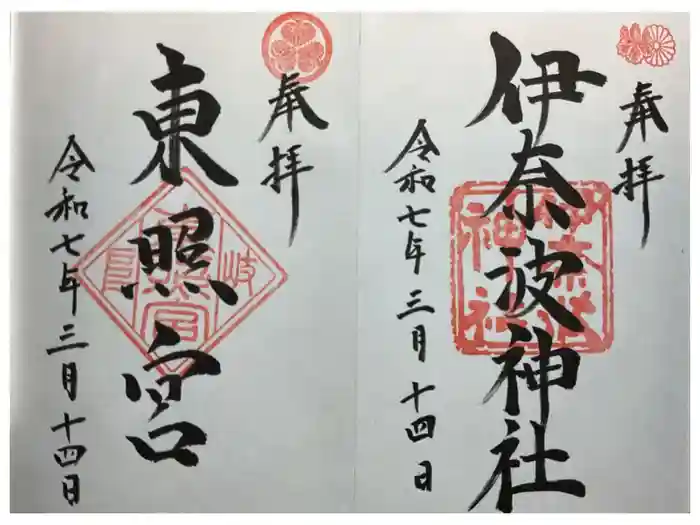 奉拝
伊奈波神社
令和七年三月十四日
奉拝
東照宮
令和七年三月十四日